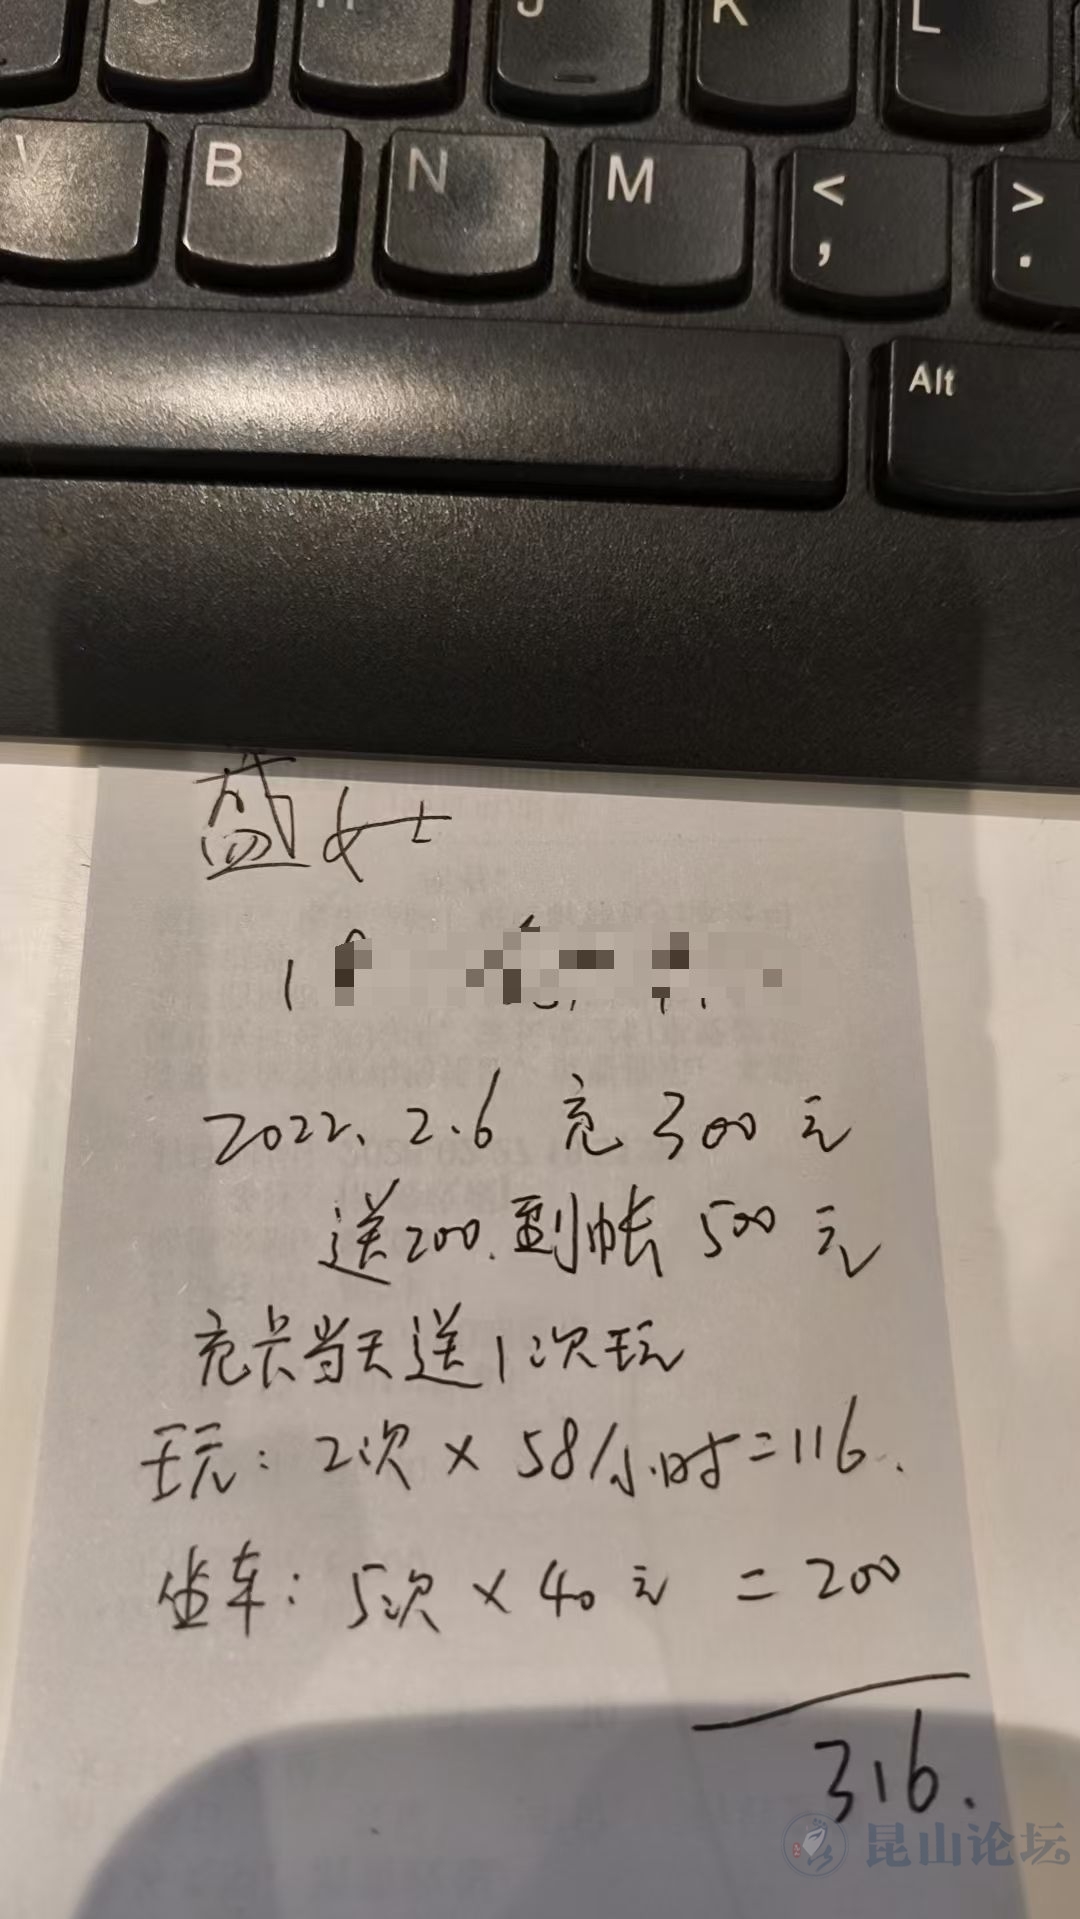 J K L
V B N M < , > .
Alt
盛女士
1
2022、2.6 充 300 元
送200.到帐 500 元
充卡当天送1次玩
玩：2次 × 58/小时=116.
坐车：5次 × 40 元 = 200
316.
昆山论坛